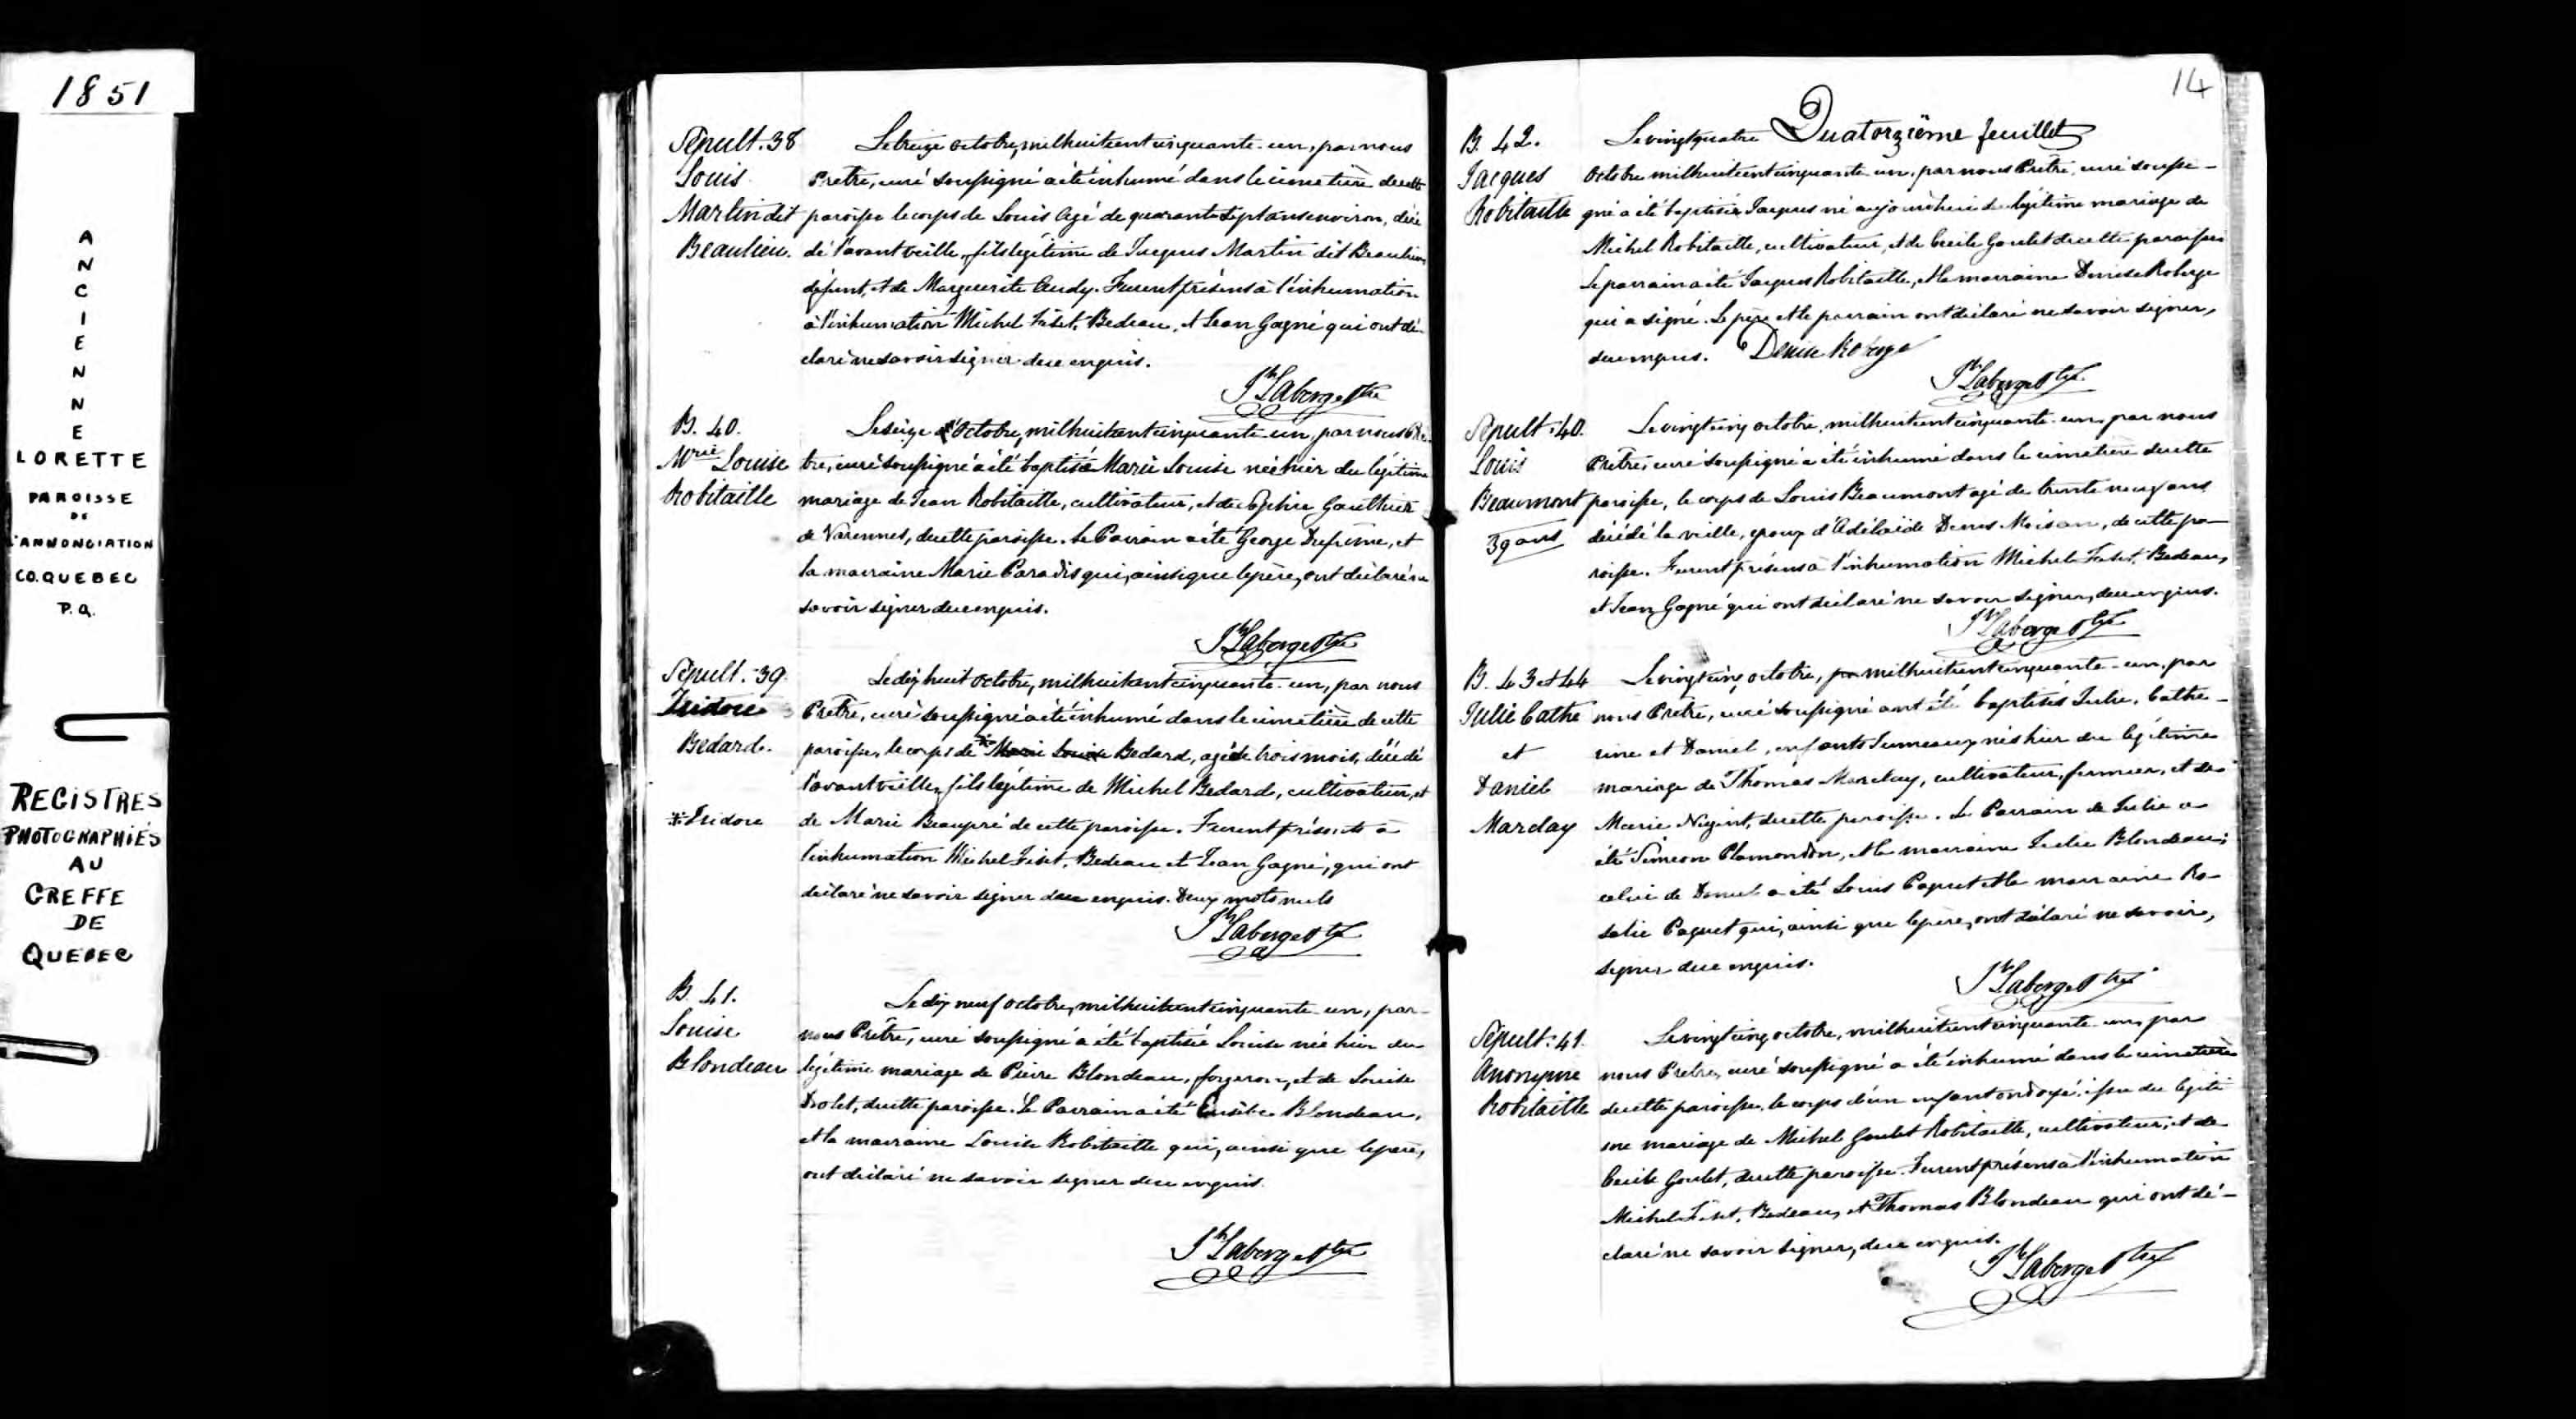 1851
ANCIENNE
LORETTE
PAROISSE
DE
L'ANNONCIATION
CO. QUEBEC
P.Q.
REGISTRES
PHOTOGRAPHIÉS
AU
GREFFE
DE
QUEBEC
Sépult. 38
Louis
Martin dit
Beaulieu.
Le treize octobre, mil huit cent cinquante-un, par nous
Prêtre, curé soussigné a été inhumé dans le cimetière de cette
paroisse le corps de Louis agé de quarante sept ans environ, décé
dé l'avant veille, fils légitime de Jacques Martin dit Beaulieu,
défunt, et de Marguerite Audy. Furent présens à l'inhumation
à l'inhumation Michel Fiset, Bedeau, et Jean Gagné qui ont dé-
claré ne savoir signer de ce enquis.
Jh Laberge Ptre
B. 40.
Mrie Louise
Robitaille
Le seize Octobre, mil huit cent cinquante-un, par nous Prê-
tre, curé soussigné a été baptisée Marie Louise née hier du légitime
mariage de Jean Robitaille, cultivateur, et de Sophie Gauthier
de Varennes, de cette paroisse. Le Parrain a été George Dufresne, et
la marraine Marie Paradis qui, ainsi que le père, ont déclaré ne
savoir signer de ce enquis.
Jh Laberge Ptre
Sépult. 39.
Isidore
Bedard.
*Isidore
Le dix huit Octobre, mil huit cent cinquante-un, par nous
Prêtre, curé soussigné a été inhumé dans le cimetière de cette
paroisse, le corps de * Marie Louise Bedard, agé de trois mois, décédé
l'avant veille, fils légitime de Michel Bedard, cultivateur, et
de Marie Beaupré de cette paroisse. Furent présents à
l'inhumation Michel Fiset, Bedeau et Jean Gagné, qui ont
déclaré ne savoir signer de ce enquis. Deux mots nuls
Jh Laberge Ptre
B. 41.
Louise
Blondeau
Le dix neuf octobre, mil huit cent cinquante-un, par
nous Prêtre, curé soussigné a été baptisée Louise née hier du
légitime mariage de Pierre Blondeau, forgeron, et de Louise
Drolet, de cette paroisse. Le Parrain a été Eusèbe Blondeau,
et la marraine Louise Robitaille qui, ainsi que le père,
ont déclaré ne savoir signer de ce enquis.
Jh Laberge Ptre
14
Quatorzième feuillet
B. 42.
Jacques
Robitaille
Le vingt quatre
Octobre mil huit cent cinquante-un, par nous Prêtre, curé soussi-
gné a été baptisé Jacques né aujourd'hui du légitime mariage de
Michel Robitaille, cultivateur, et de Cecile Goulet de cette paroisse.
Le parrain a été Jacques Robitaille, et la marraine Denise Roberge
qui a signé. Le père et le parrain ont déclaré ne savoir signer,
de ce enquis. Denise Roberge
Jh Laberge Ptre
Sépult. 40.
Louis
Beaumont
39 ans
Le vingt cinq octobre, mil huit cent cinquante-un, par nous
Prêtre, curé soussigné a été inhumé dans le cimetière de cette
paroisse, le corps de Louis Beaumont agé de trente neuf ans
décédé la veille, epoux d'Adélaïde Denis Moisan, de cette pa-
roisse. Furent présens à l'inhumation Michel Fiset, Bedeau,
et Jean Gagné qui ont déclaré ne savoir signer, de ce enquis.
Jh Laberge Ptre
B. 43 et 44
Julie Cathe
et
Daniel
Marclay
Le vingt cinq octobre, mil huit cent cinquante-un, par
nous Prêtre, curé soussigné ont été baptisés Julie, Cathe-
rine et Daniel, enfants jumeaux nés hier du légitime
mariage de Thomas Marclay, cultivateur, fermier, et de
Marie Nugint, de cette paroisse. Le Parrain de Julie a
été Simeon Plamondon, et la marraine Julie Blondeau;
celui de Daniel a été Louis Paquet et la marraine Ro-
salie Paquet qui, ainsi que le père, ont déclaré ne savoir,
signer de ce enquis.
Jh Laberge Ptre
Sépult. 41.
Anonyme
Robitaille
Le vingt cinq octobre, mil huit cent cinquante-un, par
nous Prêtre, curé soussigné a été inhumé dans le cimetière
de cette paroisse, le corps d'un enfant ondoyé, issu du légiti
me mariage de Michel Goulet Robitaille, cultivateur, et de
Cecile Goulet, de cette paroisse. Furent présens à l'inhumation
Michel Fiset, Bedeau, et Thomas Blondeau qui ont dé-
claré ne savoir signer, de ce enquis.
Jh Laberge Ptre